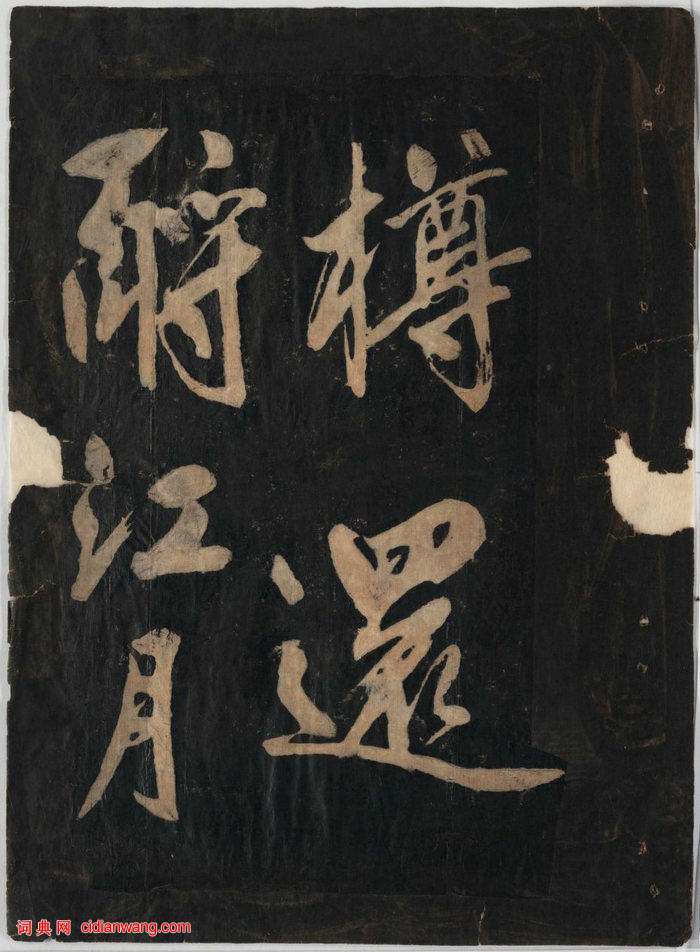 樽還
酹江月
词典网 cidianwang.com